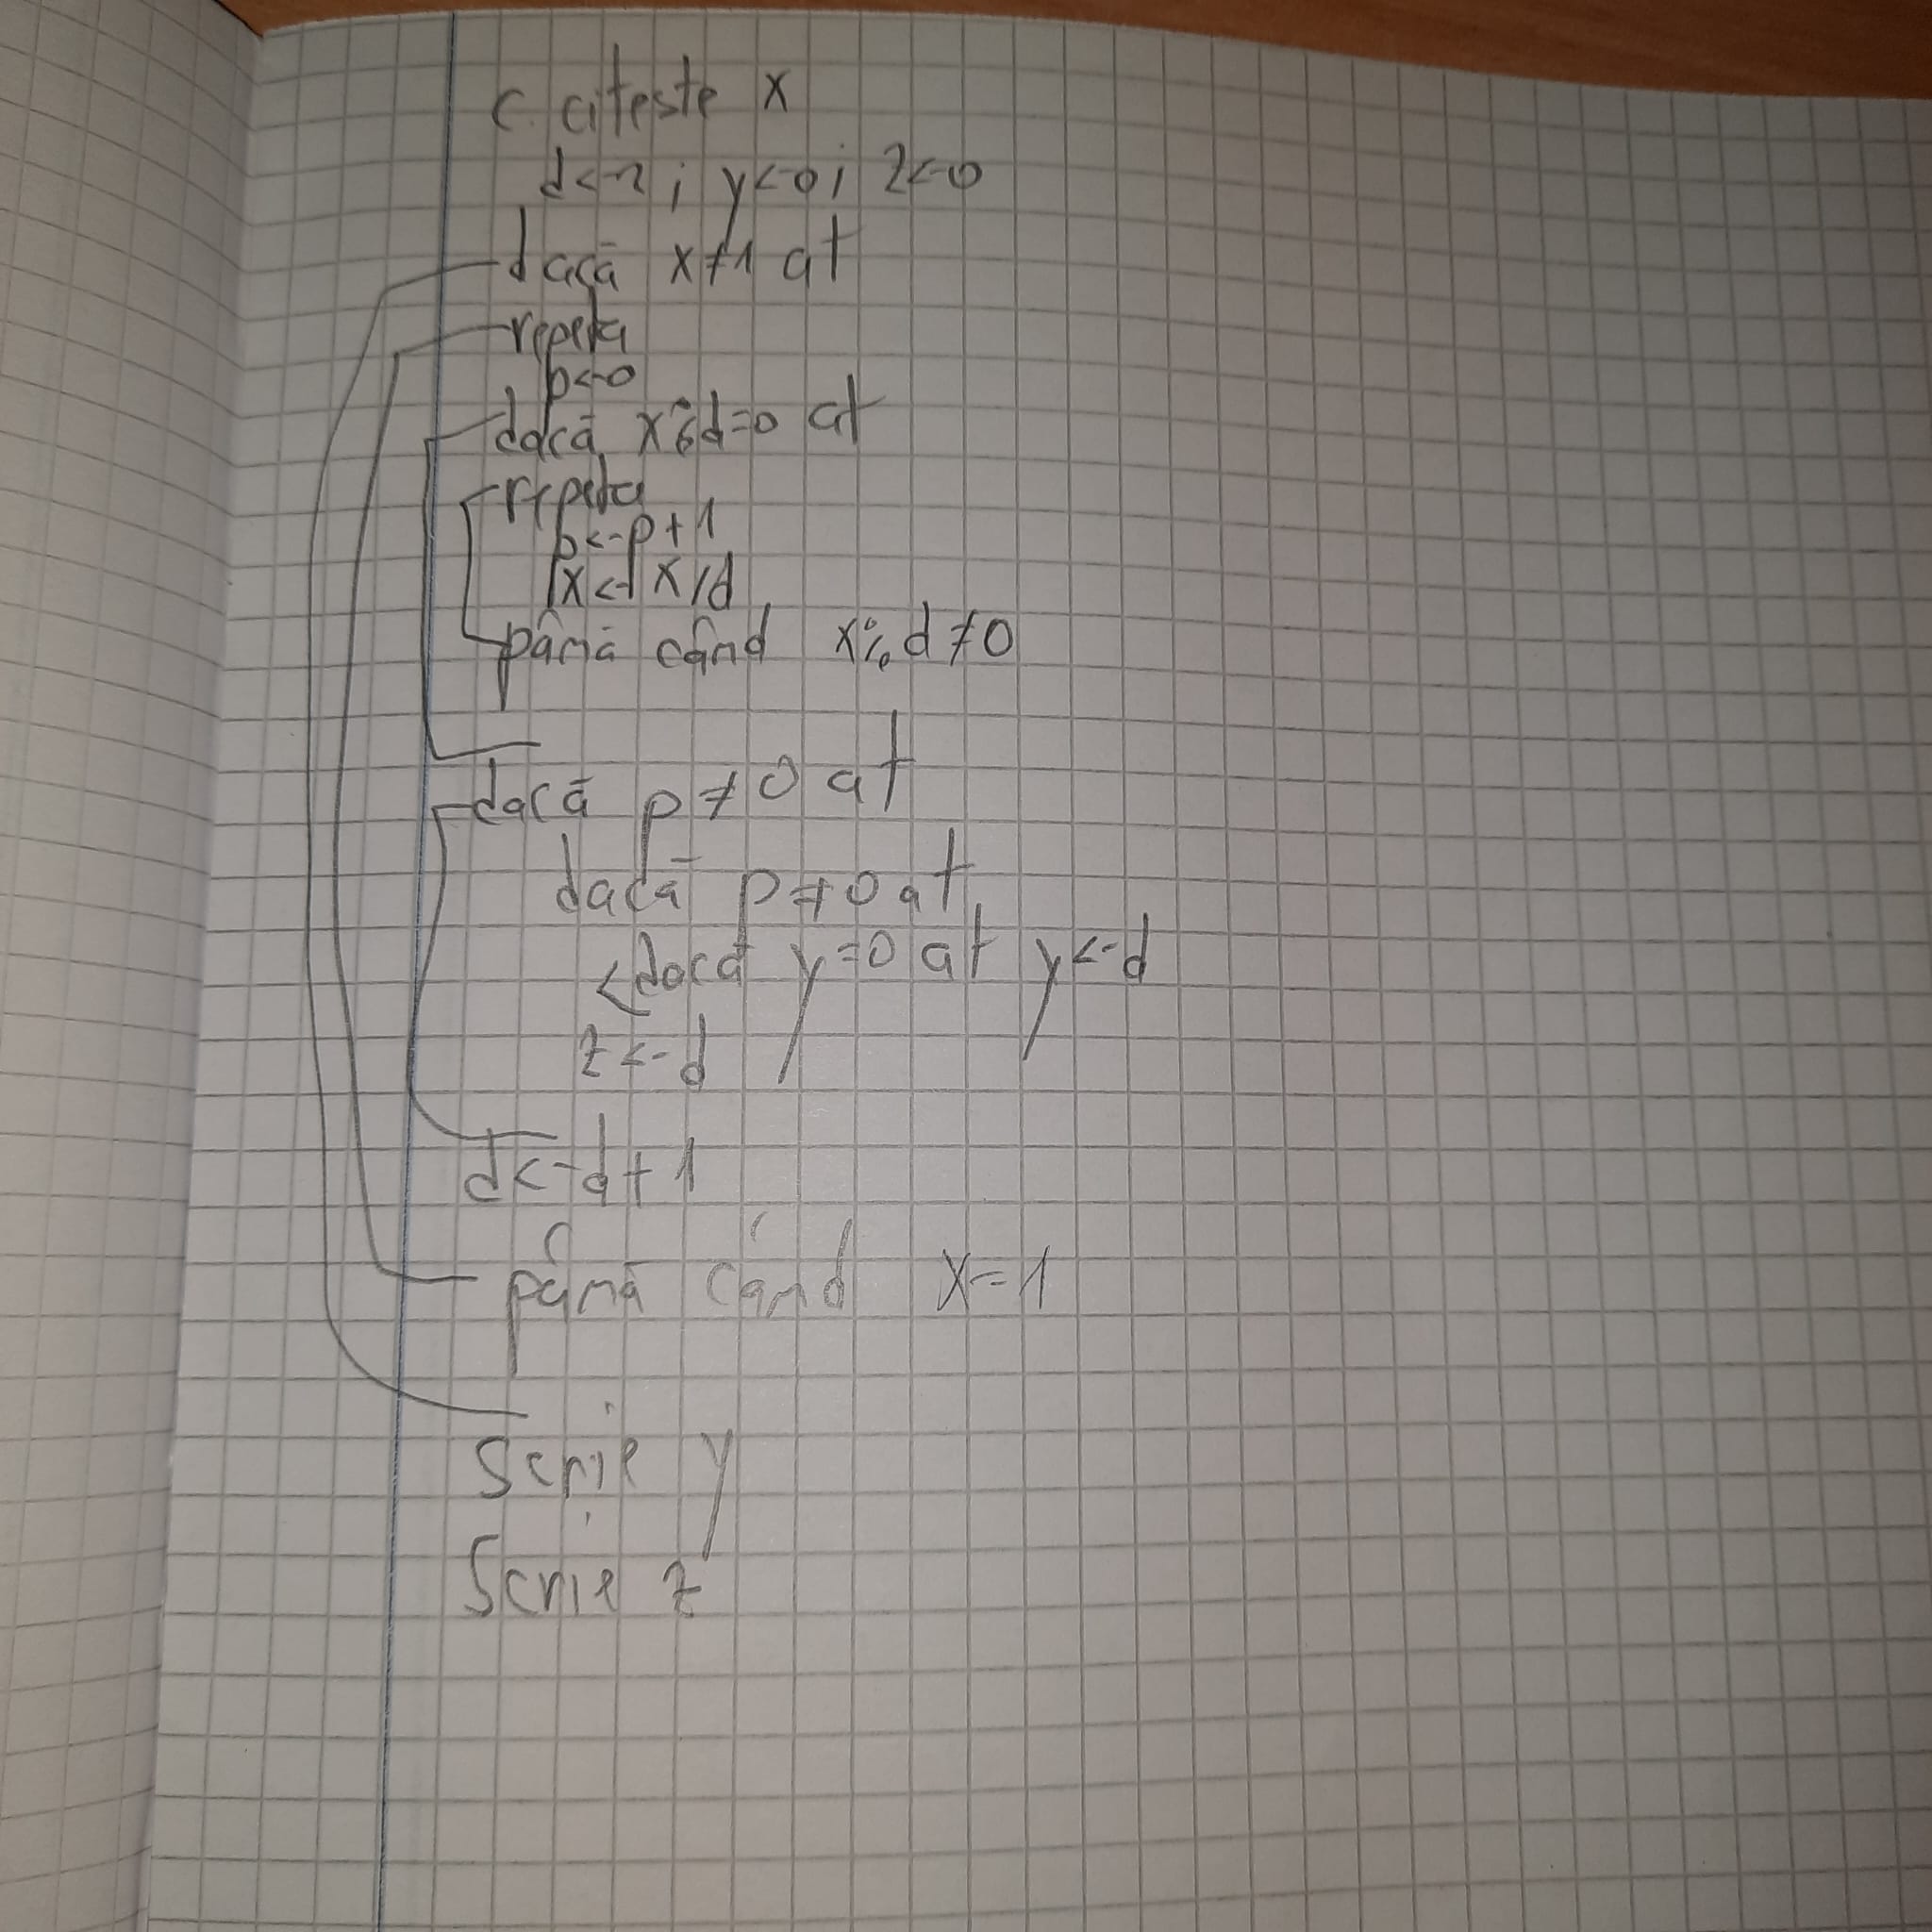 c. citeste x
d<-2; y<-0; z<-0
dacă x≠1 at
repeta
p<-0
dacă x%d=0 at
repeta
p<-p+1
x<-x/d
până când x%d≠0
dacă p≠0 at
dacă p≠0 at
<dacă y=0 at y<-d
z<-d
d<-d+1
până când x=1
Scrie y
Scrie z